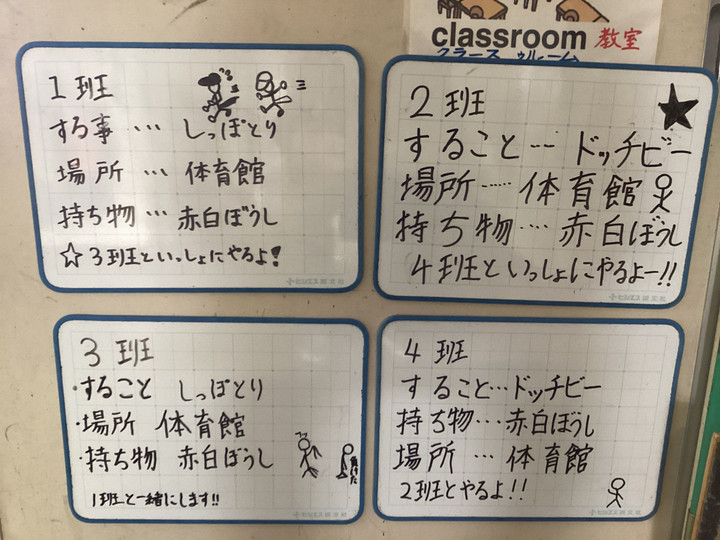 classroom 教室
クラース ゥルーム
1班
する事…しっぽとり
場所…体育館
持ち物…赤白ぼうし
☆3班といっしょにやるよ!
2班 ★
すること…ドッチビー
場所……体育館
持ち物…赤白ぼうし
4班といっしょにやるよー!!
3班
・すること しっぽとり
・場所 体育館
・持ち物 赤白ぼうし
負けた
1班と一緒にします!!
4班
すること…ドッチビー
持ち物…赤白ぼうし
場所…体育館
2班とやるよ!!